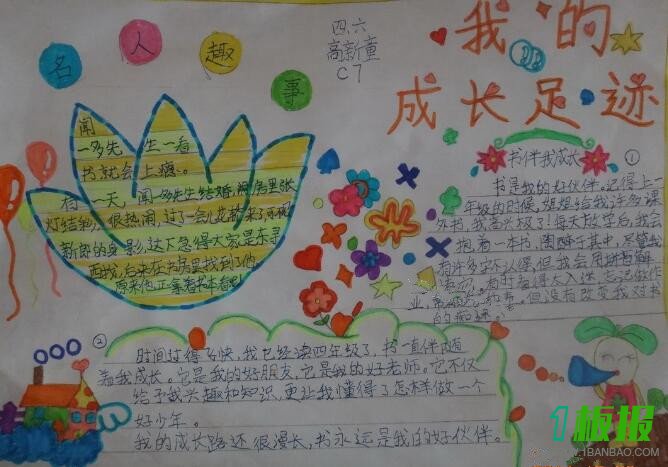 我的
成长足迹
四.六
高新童
C7
名人趣事
闻
一多先生一看
书就会上瘾。
有一天，闻一多先生结婚，房里张
灯结彩，很热闹，过了一会儿花轿来了，可
新郎的身影，这下急得大家是东寻
西找，后来在书房里找到了他，
原来他正拿着书本看呢！
书伴我成长
①
书是我的好伙伴。记得上一
年级的时候，姐姐给我许多课
外书，我高兴极了！每天放学后，我会
抱着一本书，围醉于其中，尽管我
有许多字不认得，但我会用拼音解
有时看得太入迷，忘记做作
业，但没有改变我对书
的痴迷。
②
时间过得飞快，我已经读四年级了，书一直伴随
着我成长。它是我的好朋友，它是我的好老师。它不仅
给予我兴趣和知识，更让我懂得了怎样做一个
好少年。
我的成长路还很漫长，书永远是我的好伙伴。
1板报
WWW.1BANBAO.COM